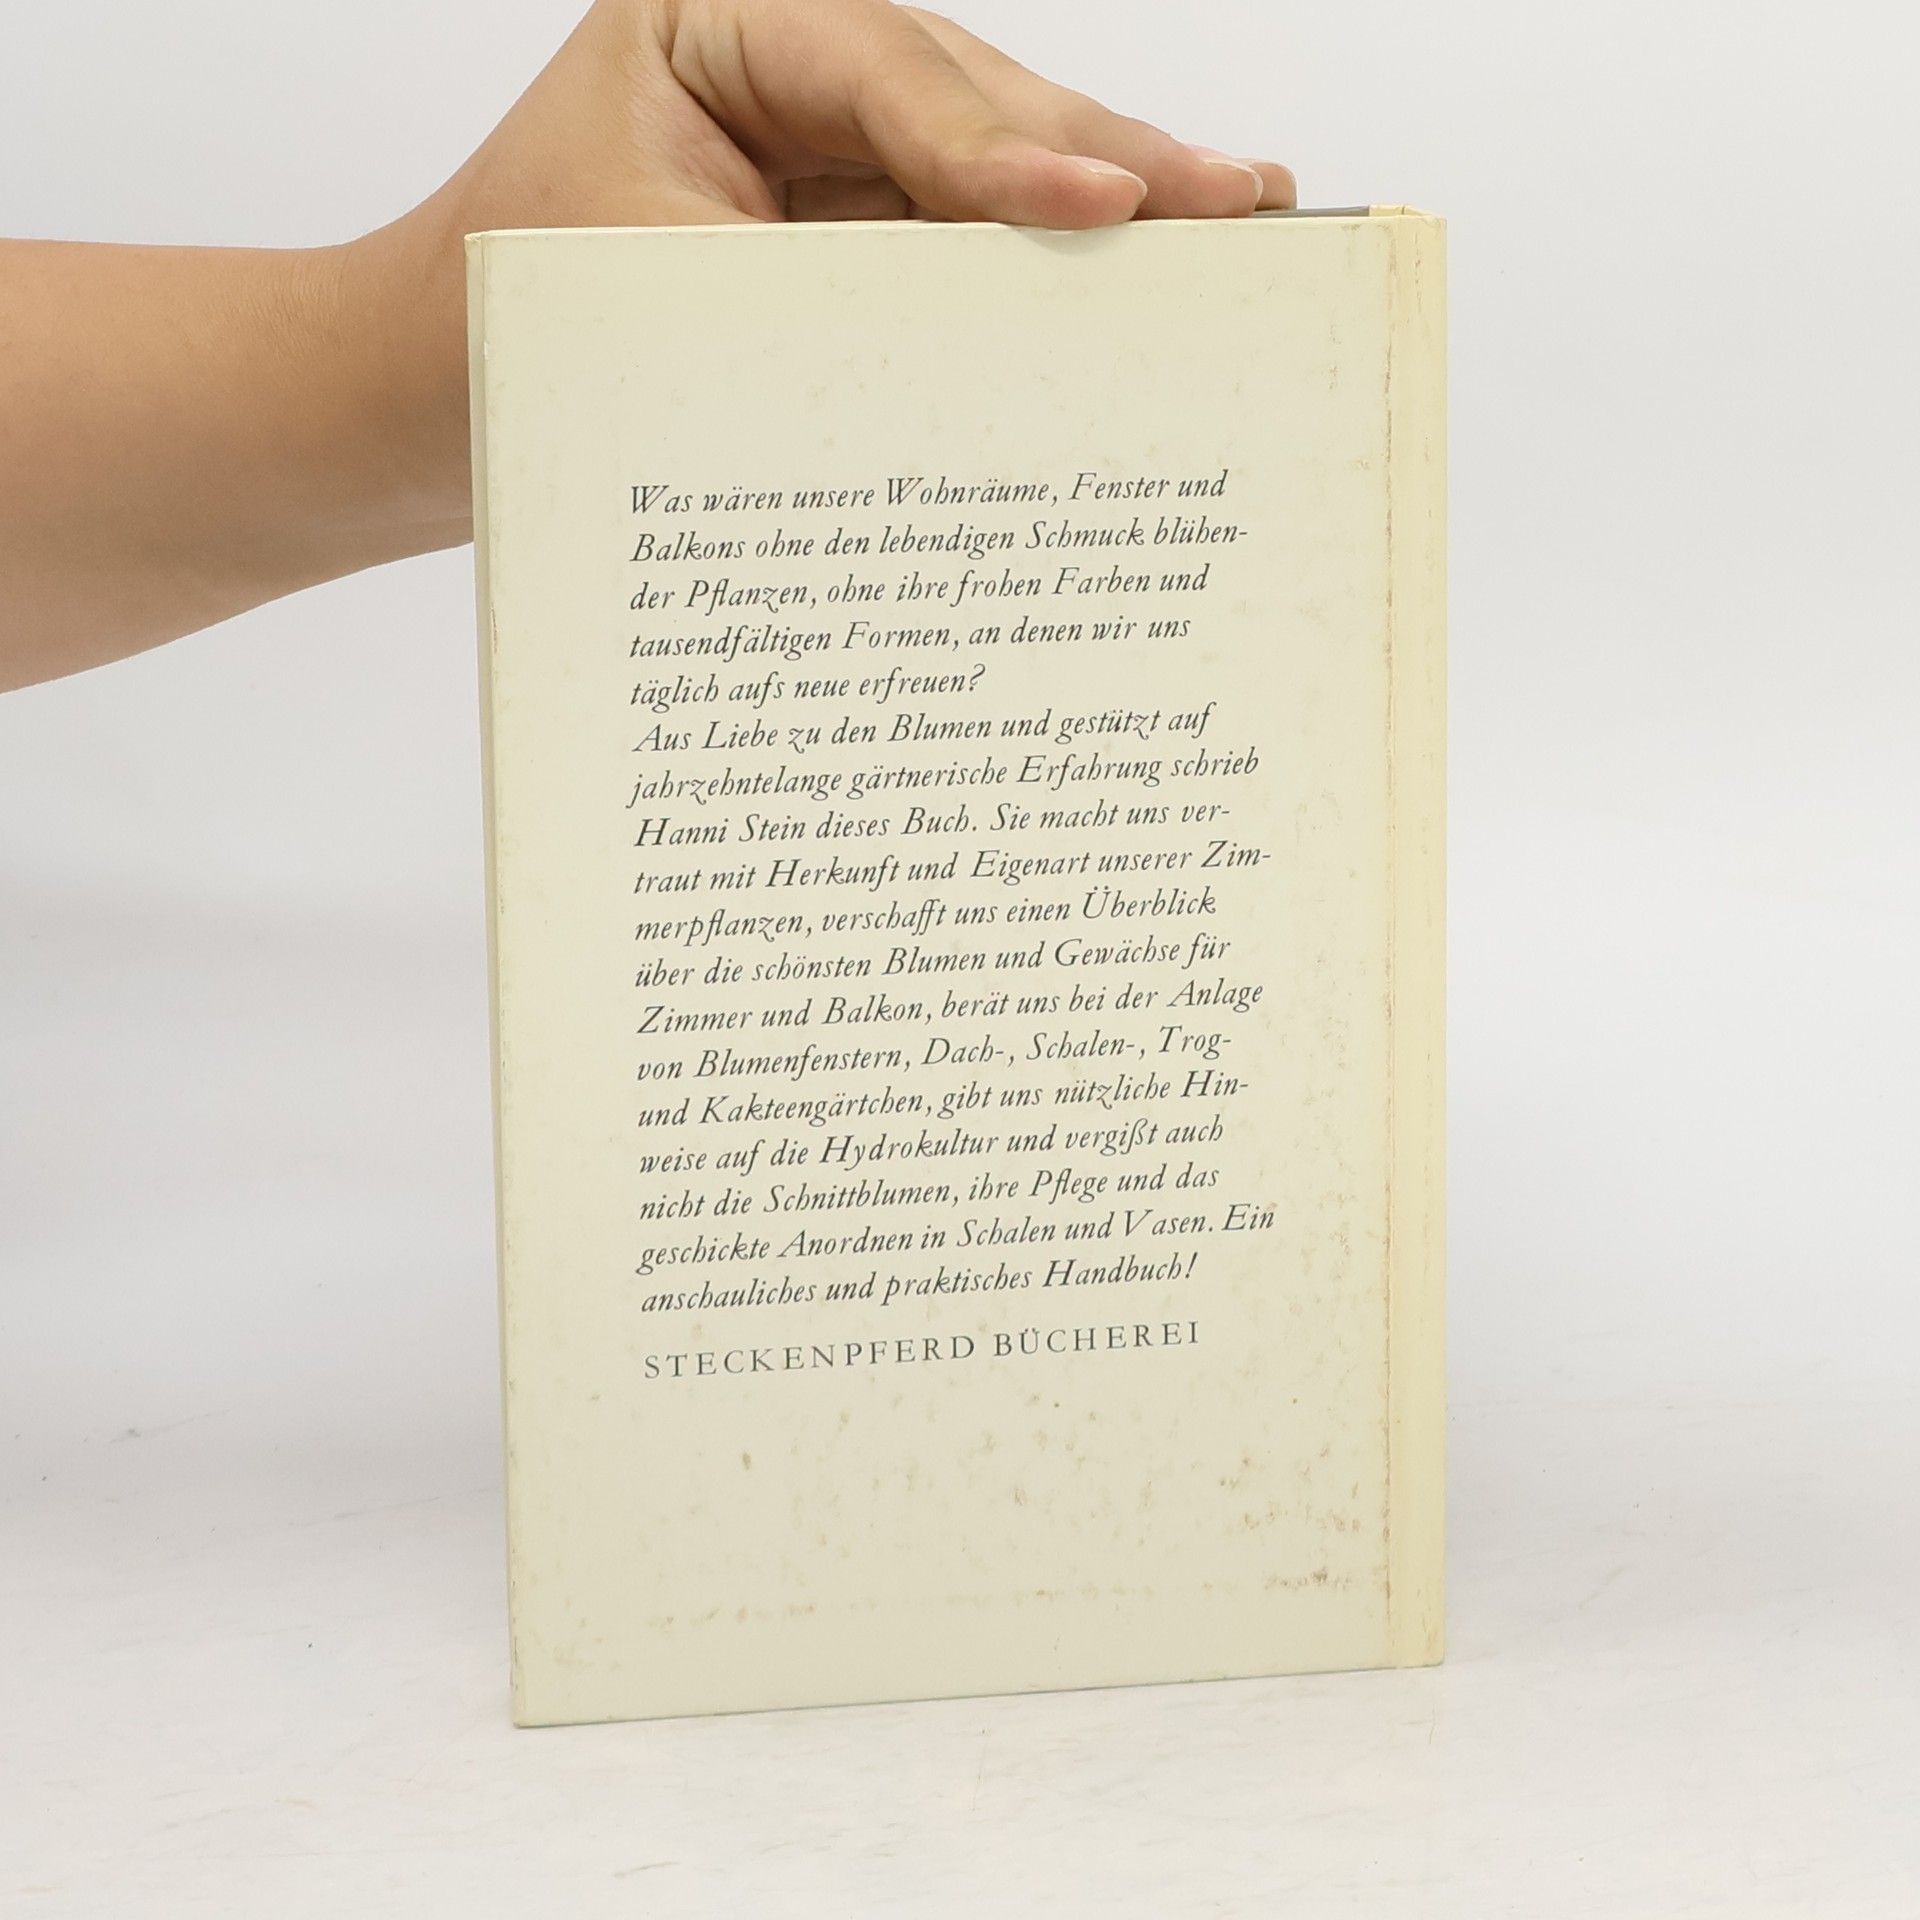 Was wären unsere Wohnräume, Fenster und
Balkons ohne den lebendigen Schmuck blühen-
der Pflanzen, ohne ihre frohen Farben und
tausendfältigen Formen, an denen wir uns
täglich aufs neue erfreuen?
Aus Liebe zu den Blumen und gestützt auf
jahrzehntelange gärtnerische Erfahrung schrieb
Hanni Stein dieses Buch. Sie macht uns ver-
traut mit Herkunft und Eigenart unserer Zim-
merpflanzen, verschafft uns einen Überblick
über die schönsten Blumen und Gewächse für
Zimmer und Balkon, berät uns bei der Anlage
von Blumenfenstern, Dach-, Schalen-, Trog-
und Kakteengärtchen, gibt uns nützliche Hin-
weise auf die Hydrokultur und vergißt auch
nicht die Schnittblumen, ihre Pflege und das
geschickte Anordnen in Schalen und Vasen. Ein
anschauliches und praktisches Handbuch!
STECKENPFERD BÜCHEREI